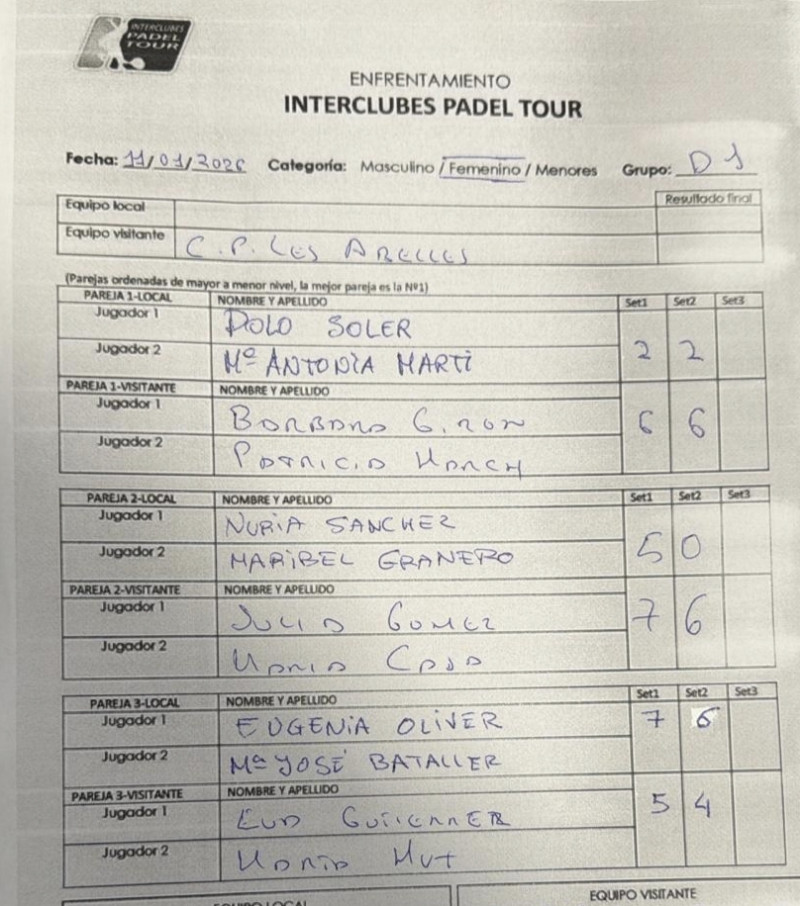 INTERCLUBES
PADEL
TOUR
ENFRENTAMIENTO
INTERCLUBES PADEL TOUR
Fecha: 11/01/2026 Categoría: Masculino / Femenino / Menores Grupo: D 1
Equipo local Resultado final
Equipo visitante C.P. LES ABELLES
(Parejas ordenadas de mayor a menor nivel, la mejor pareja es la Nº1)
PAREJA 1-LOCAL NOMBRE Y APELLIDO Set1 Set2 Set3
Jugador 1 POLO SOLER
Jugador 2 Mª ANTONIA MARTI 2 2
PAREJA 1-VISITANTE NOMBRE Y APELLIDO
Jugador 1 BARBARA GIRON 6 6
Jugador 2 PATRICIA MARCH
PAREJA 2-LOCAL NOMBRE Y APELLIDO Set1 Set2 Set3
Jugador 1 NURIA SANCHEZ
Jugador 2 MARIBEL GRANERO 5 0
PAREJA 2-VISITANTE NOMBRE Y APELLIDO
Jugador 1 JULIA GOMEZ 7 6
Jugador 2 MARIA CASA
PAREJA 3-LOCAL NOMBRE Y APELLIDO Set1 Set2 Set3
Jugador 1 EUGENIA OLIVER 7 6
Jugador 2 Mª JOSÉ BATALLER
PAREJA 3-VISITANTE NOMBRE Y APELLIDO
Jugador 1 EVA GUTIERREZ 5 4
Jugador 2 MARIA MUT
EQUIPO LOCAL EQUIPO VISITANTE